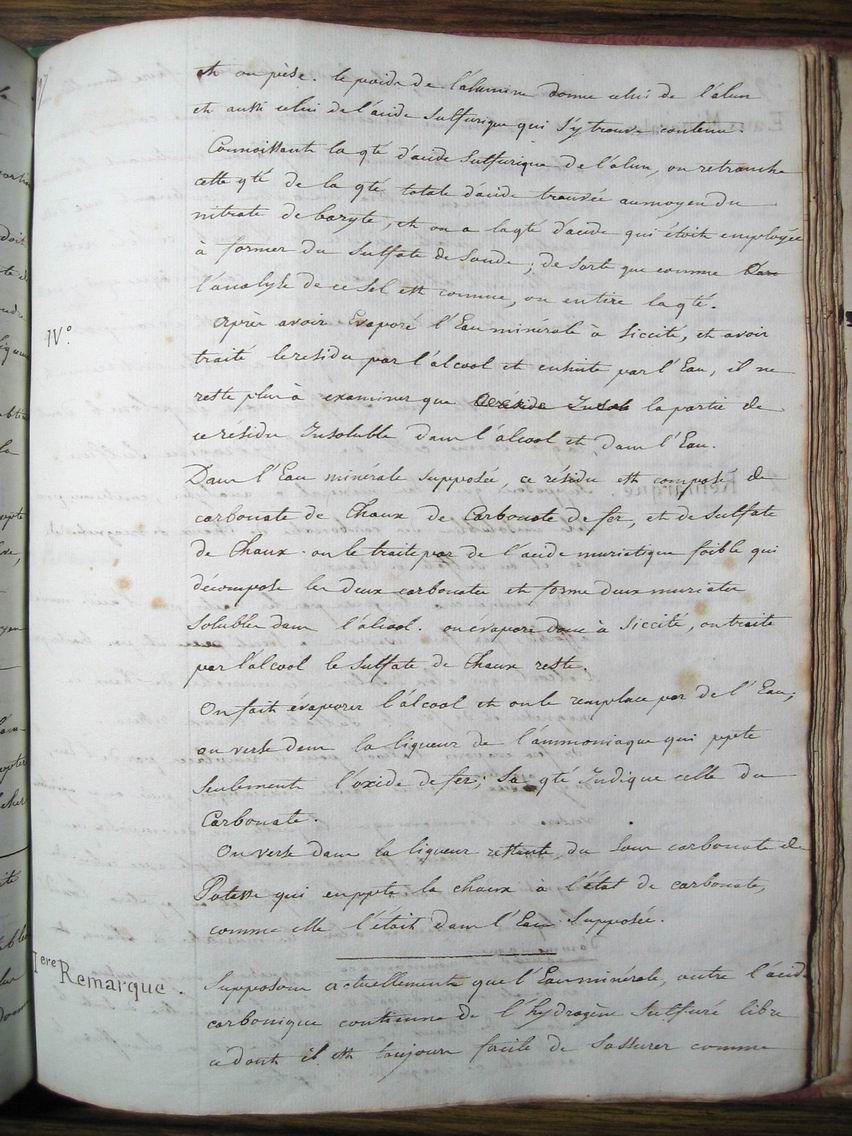 et on pèse. le poids de l'alumine donne celui de l'alun
et aussi celui de l'acide sulfurique qui s'y trouve contenu.
Connoissant la qté d'acide sulfurique de l'alun, on retranche
cette qté de la qté totale d'acide trouvée au moyen du
nitrate de baryte, et on a la qté d'acide qui étoit employée
à former du sulfate de soude ; de sorte que comme
l'analyse de ce sel est connue, on en tire la qté.
IV°
Après avoir Evaporé l'Eau minérale à siccité, et avoir
traité le residu par l'alcool et ensuite par l'Eau, il ne
reste plus à examiner que la partie de
ce residu Insoluble dans l'alcool et dans l'Eau.
Dans l'Eau minérale supposée, ce résidu est composé de
carbonate de Chaux de Carbonate de fer, et de Sulfate
de Chaux. on le traite par de l'acide muriatique foible qui
décompose les deux carbonates et forme deux muriates
Solubles dans l'alcool. on évapore donc à Siccité, on traite
par l'alcool le sulfate de Chaux reste.
On fait évaporer l'alcool et on le remplace par de l'Eau;
on verse dans la liqueur de l'ammoniaque qui ppte
seulement l'oxide de fer; Sa qté Indique celle du
Carbonate.
On verse dans la liqueur restante, du Sous carbonate de
Potasse qui en ppte la chaux à l'état de carbonate,
comme elle l'était dans l'Eau Supposée.
Iere Remarque.
Supposons actuellement que l'Eau minérale, outre l'acide
carbonique contienne de l'hydrogène Sulfuré libre
ce dont il est toujours facile de s'assurer comme